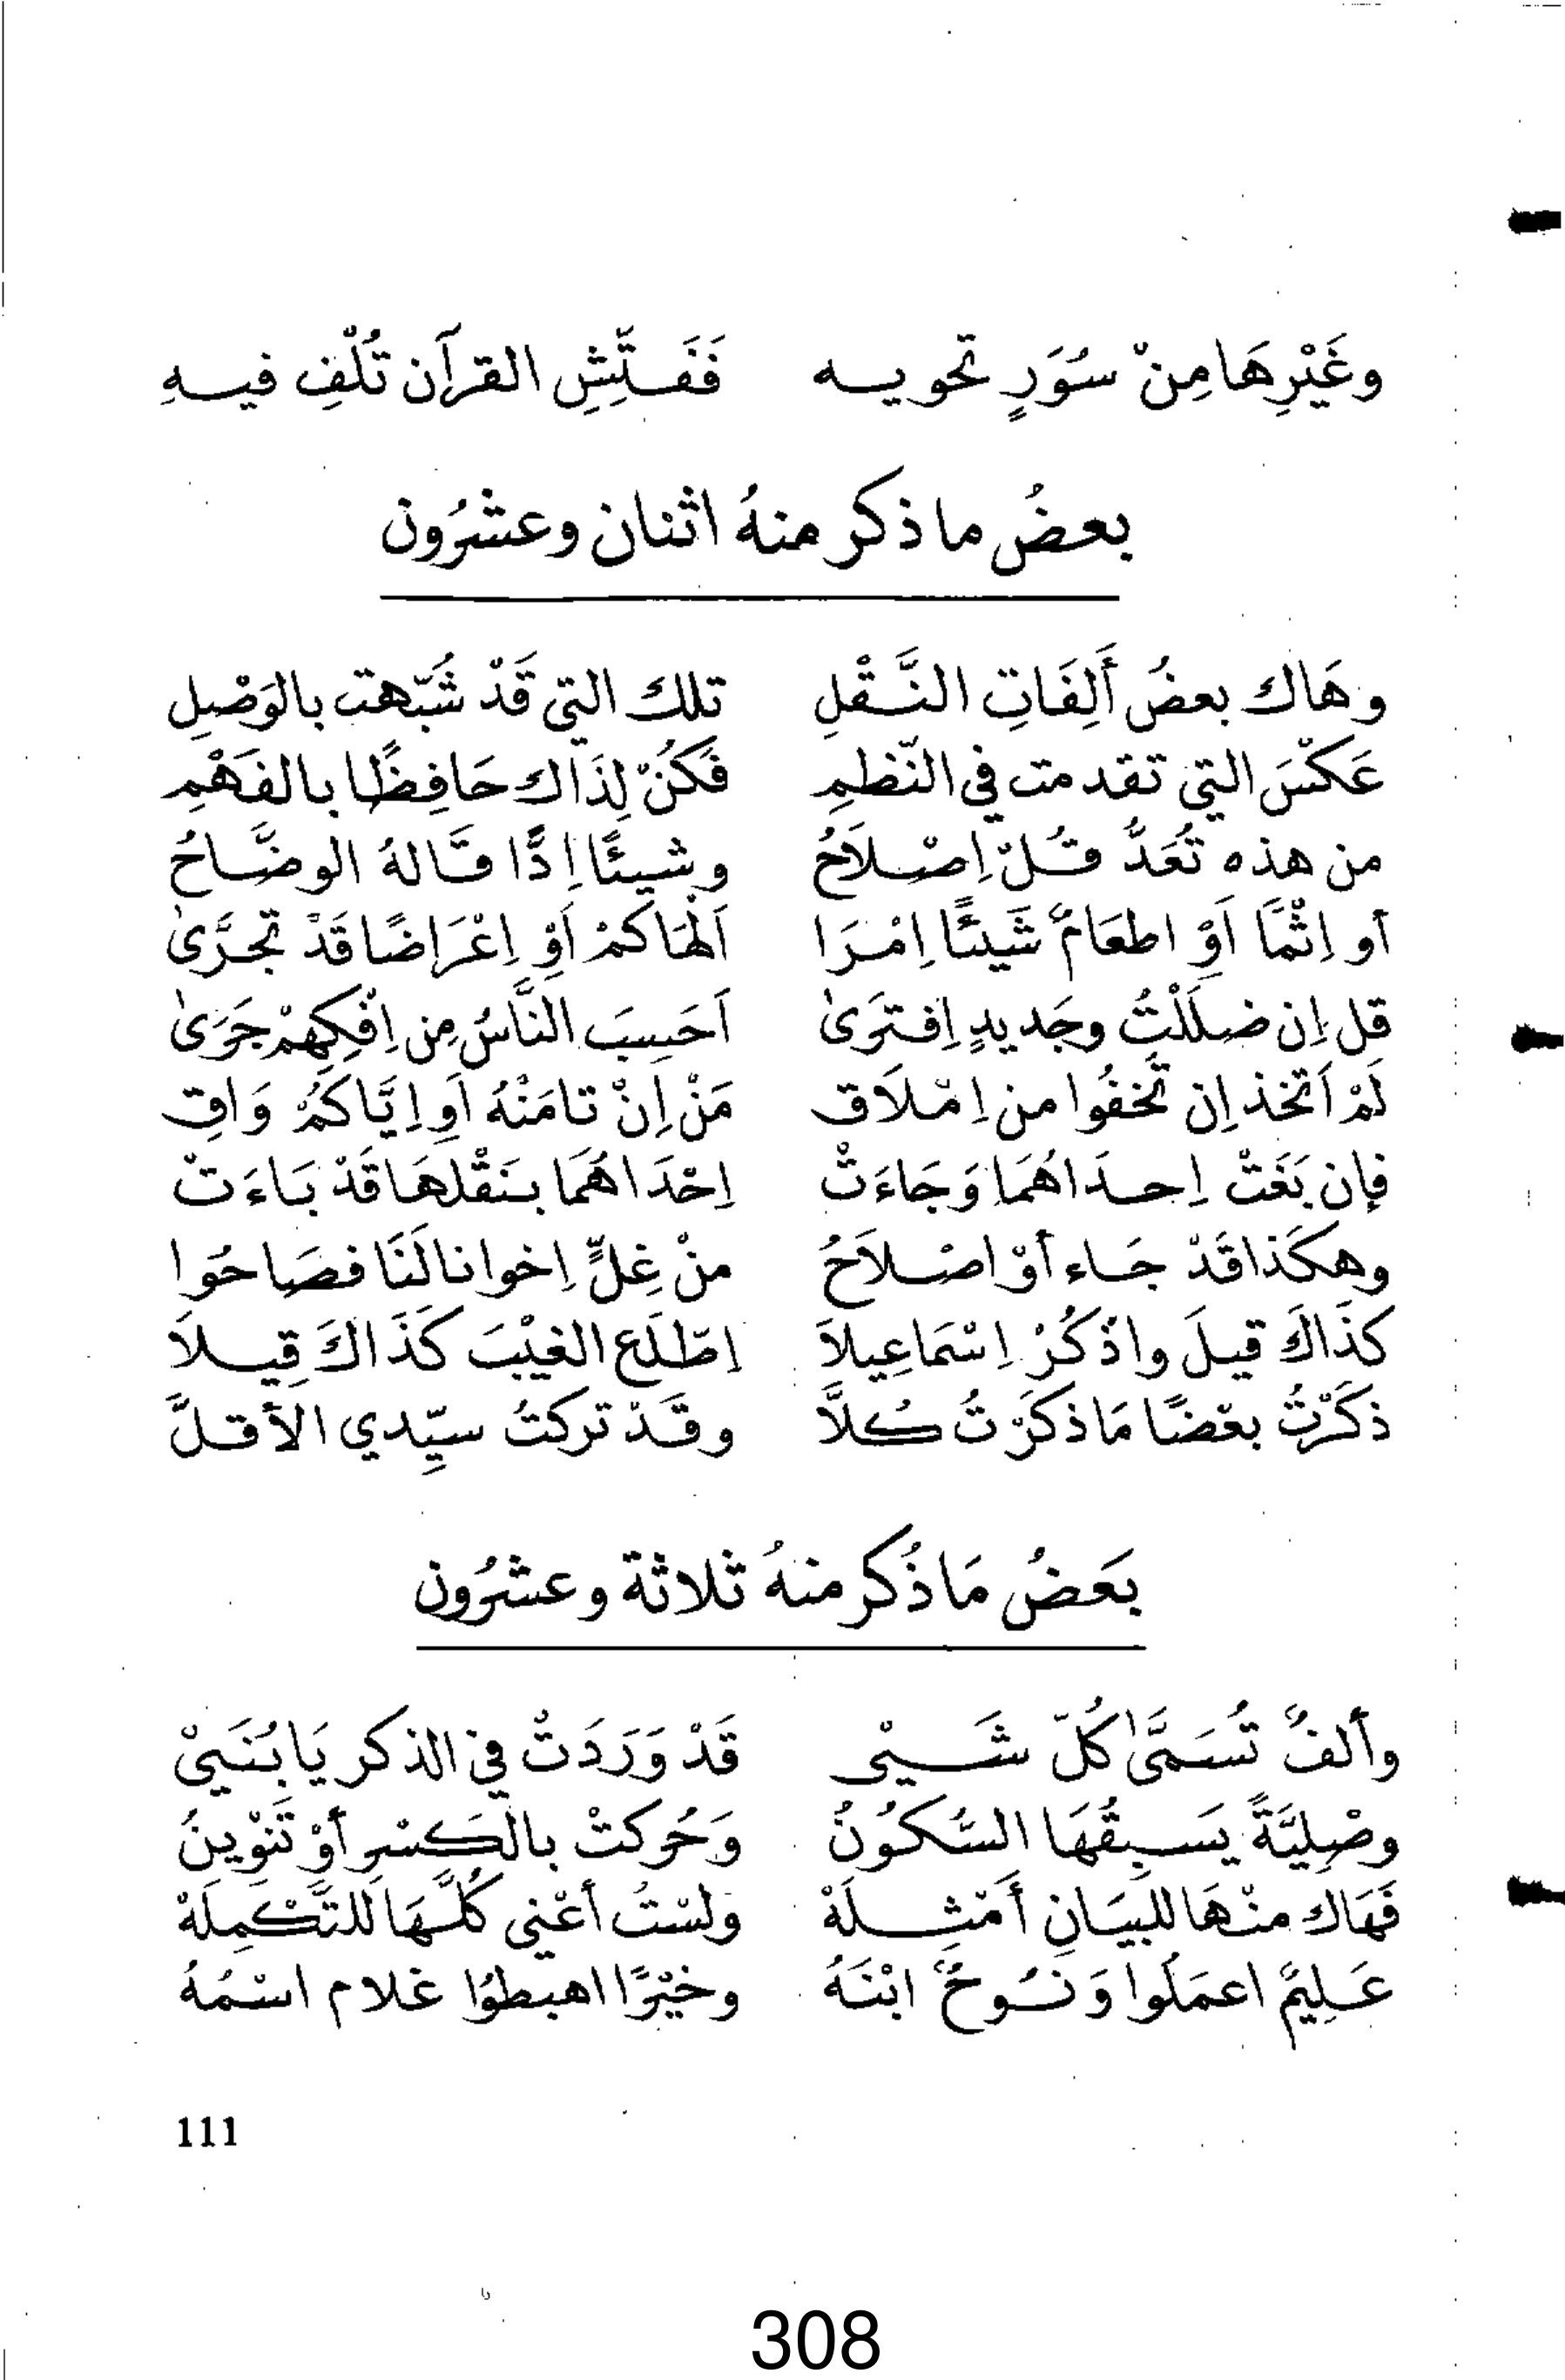 وغَيْرِهَا مِنْ سُوَرٍ تحويه فَفَتِّشِ القرآن تُلْفِ فيهِ
بعضُ ما ذكر منهُ اثنان وعشرُون
وهَاك بعضُ أَلِفَاتِ النَّقْلِ تلك التي قَدْ شُبّهت بالوَصْلِ
عَكْسَ التي تقدمت في النّظمِ فَكُنْ لِذَاك حَافِظًا بالفَهْمِ
من هذه تُعَدُّ قُلْ إصْلاَحُ وشيئًا إدًّا قَالهُ الوضَّاحُ
أو إثْمًا اَوْ اطعَامٌ شَيئًا إمْرَا اَلْهَاكمْ اَوِ إعْرَاضًا قَدْ تجرَّىٰ
قل إن ضلَلْتُ وجَديدٍ إفترَىٰ اَحَسِبَ النَّاسُ مِن إفْكِهِمْ جَرَىٰ
لَمْ اَتخذ إن تُخفُوا من إمْلاَق مَنْ إنْ تامَنْهُ اَوِ إيَّاكمُ وَاقِ
فإن بَغَتْ إحدَاهُمَا وَجَاءَتْ إحْدَاهُمَا بنَقْلهَا قَدْ بَاءَتْ
وهكَذا قَدْ جَاء أوْ اصْلاَحُ منْ غِلٍّ إخوانا لَنَا فصَاحُوا
كذَاكَ قيلَ واذْكُرْ إسْمَاعِيلاَ إطّلَع الغيْبَ كَذَاكَ قِيلاَ
ذكَرْتُ بعْضًا مَا ذكَرْتُ كُلاَّ وقَدْ تركتُ سيِّدي الأقلَّ
بعَضُ مَا ذُكر منهُ ثلاثة وعشرُون
وألفٌ تُسَمَّىٰ كُلّ شَيْى قَدْ وَرَدَتْ في الذكر يَا بُنَييْ
وصْلِيَّةً يَسبِقُهَا السُّكُونُ وَحُركتْ بالكَسْرِ أوْ تَنوْينُ
فَهَاك منْهَا للبيَانِ أَمْثِلَهْ ولسْتُ أعْني كُلَّهَا للتَّكْمِلَهْ
عَلِيمٌ اعمَلُوا وَنُوحٌ ابْنَهُ وخيْرًا اهبطوُا غلام اسْمُهُ
111
308